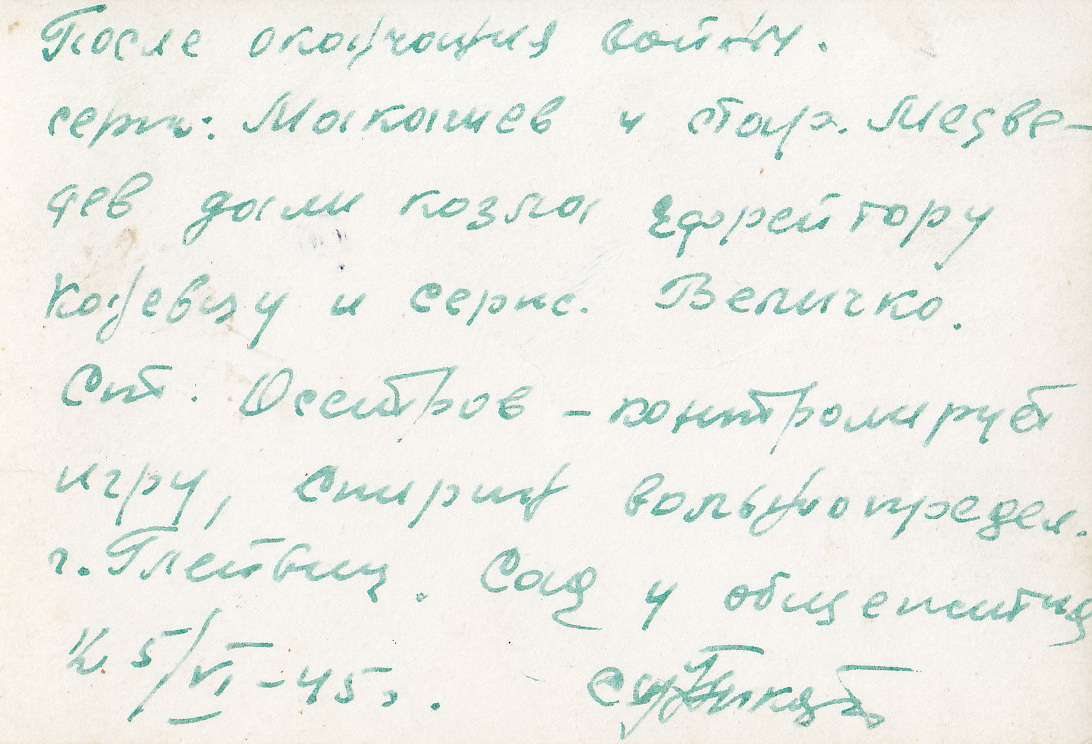 После окончания войны.
серж: Макашев и стар. Медве-
дев дали козла ефрейтору
Каневзу и серж. Величко.
Ст. Осетров - контролирует
игру, Спирин вольноопредел.
г. Глейвиц. Сад у общежития
5/VI-45г.